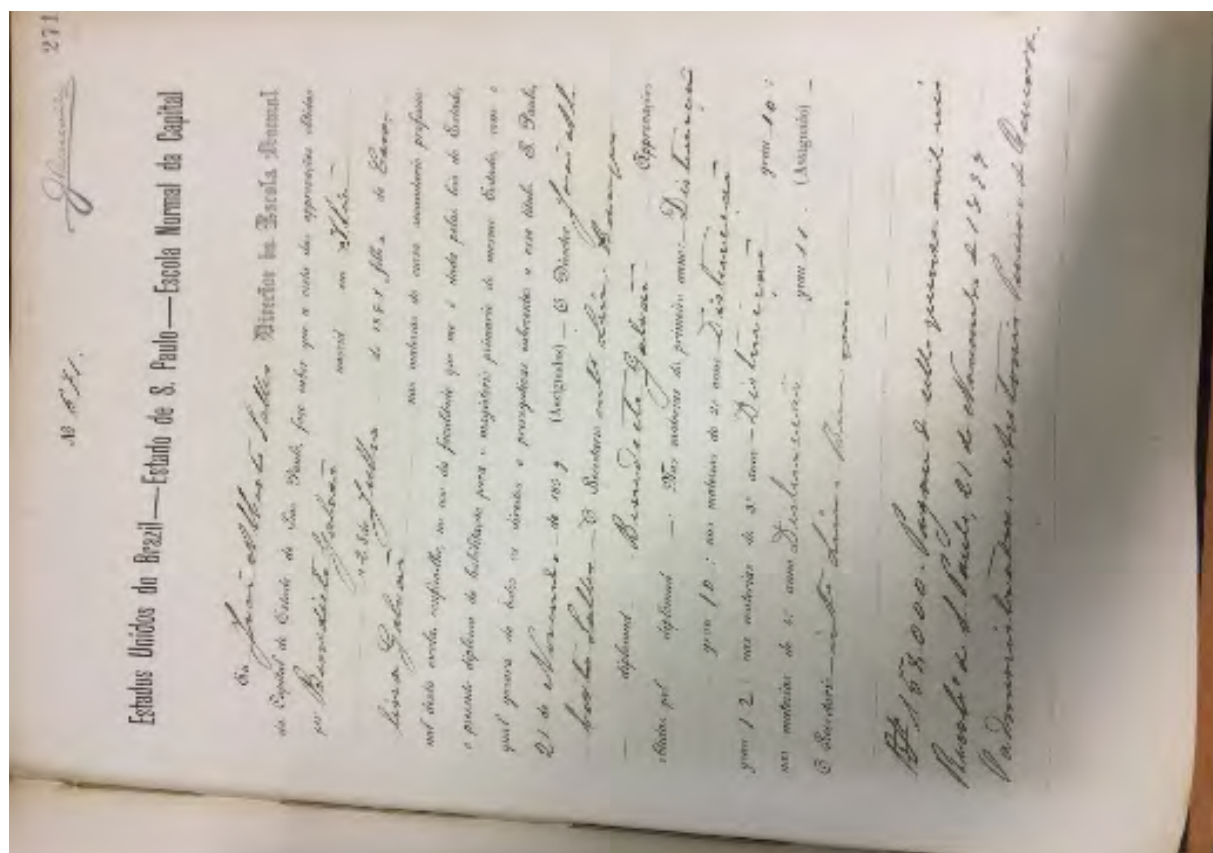 271
Nº 671.
Estados Unidos do Brazil—Estado de S. Paulo—Escola Normal da Capital
Eu João Alberto Salles Director da Escola Normal
da Capital do Estado de São Paulo, faço saber que a vista das approvações obtidas
por Benedicto Galvão nascid em Itú
a 28 de Julho de 1881 filh de
Galvão nas materias do curso secundario profissio-
nal desta escola, resolvo, no uso da faculdade que me é dada pelas leis do Estado,
o presente diploma de habilitação para o magisterio primario do mesmo Estado, com o
qual gozará de todos os direitos e prerogativas inherentes a esse titulo. S. Paulo,
21 de Novembro de 1899 (Assignados) — O Director João Al-
berto Salles — O Secretario
diplomad Benedicto Galvão
obtidas pel diplomad —: Nas materias do primeiro anno: Distincção
grau 10; nas materias do 2º anno Distincção
grau 12; nas materias do 3º anno—Distincção grau 10;
nas materias do 4º anno Distincção grau 11. (Assignado) —
O Secretario
15$000. Pagou de sello quinze mil reis
S. Paulo, 21 de Novembro de 1899